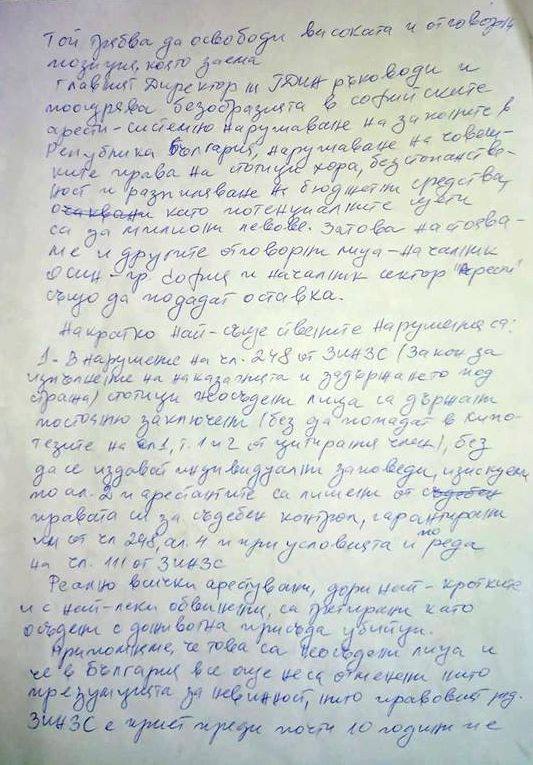 Той трябва да освободи високата и отговорна
позиция, която заема
Главният Директор на ГДИН ръководи и
поощрява безобразията в софийските
арести - системно нарушаване на законите в
Република България, нарушаване на човеш-
ките права на стотици хора, безстопанстве-
ност и разпиляване на бюджетни средства,
като потенциалните щети
са за милиони левове. Затова настоява-
ме и другите отговорни лица - началник
ОСИН - гр. София и началник сектор "Арести"
също да подадат оставка.
Накратко най-съществените нарушения са:
1 - В нарушение на чл. 248 от ЗИНЗС (Закон за
изпълнение на наказанията и задържането под
стража) стотици неосъдени лица са държани
постоянно заключени (без да попадат в хипо-
тезите на ал 1, т. 1 и 2 от цитирания член), без
да се издават индивидуални заповеди, изискуеми
по ал. 2 и арестантите са лишени от
правата си за съдебен контрол, гарантирани
им от чл 248, ал. 4 и при условията и по реда
на чл. 111 от ЗИНЗС
Реално всички арестувани, дори най-кротките
и с най-леки обвинения, са третирани като
осъдени с доживотна присъда убийци.
Припомняме, че това са неосъдени лица и
че в България все още не са отменени нито
презумпцията за невинност, нито правовият ред.
ЗИНЗС е приет преди почти 10 години и е